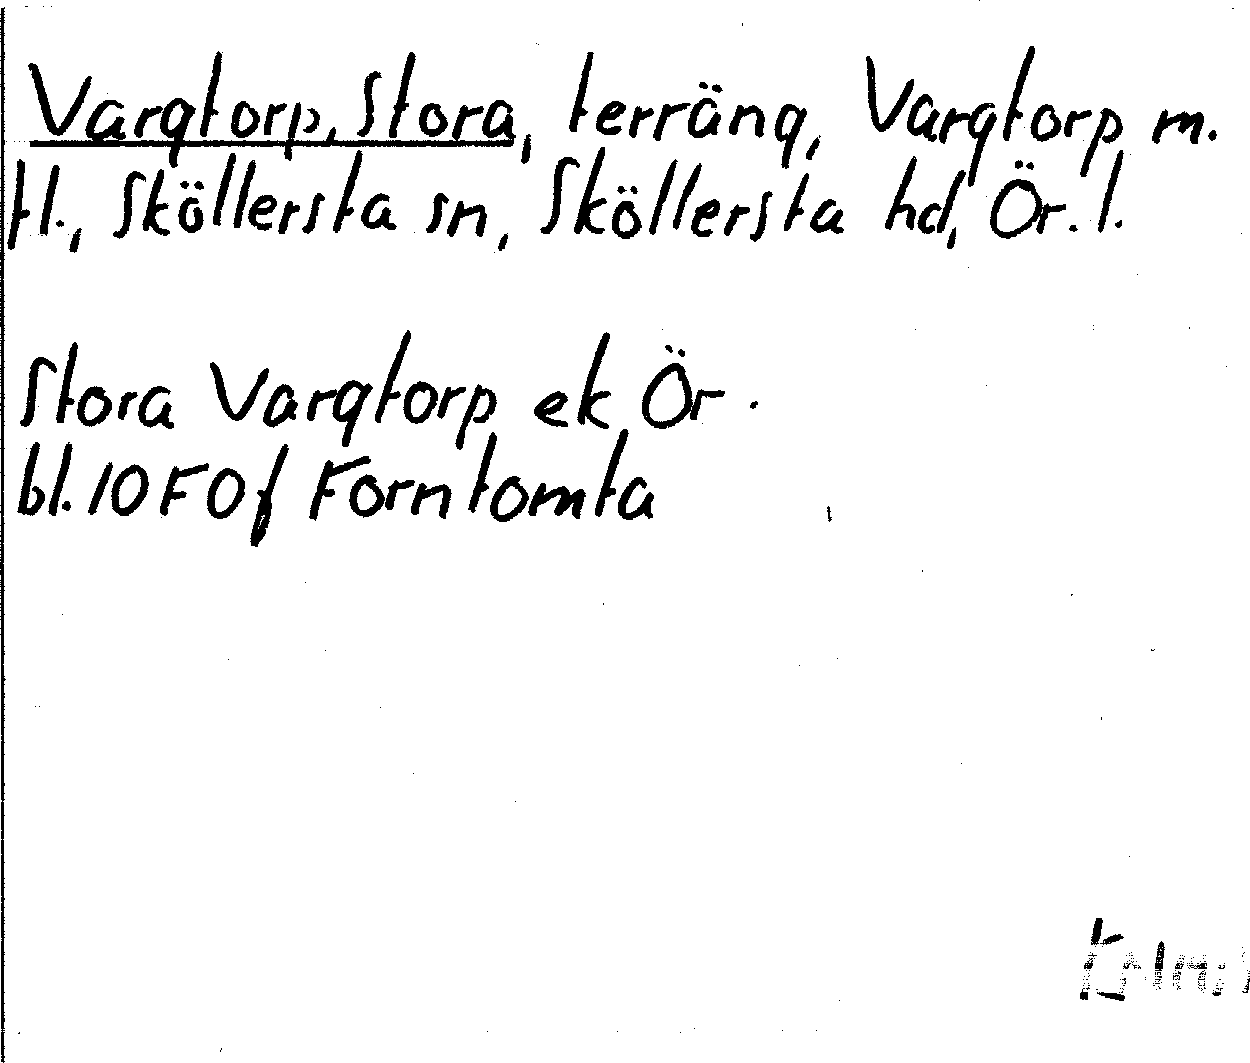 Vargtorp, Stora, terräng, Vargtorp m.
fl., Sköllersta sn, Sköllersta hd, Ör. l.
Stora Vargtorp ek Ör.
bl. 10F0f Forntomta